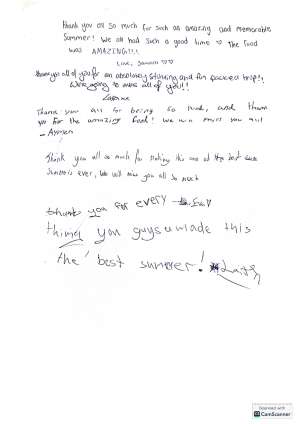 Thank you all so much for such an amazing and memorable
Summer! We all had such a good time ♡ The food
was AMAZING!!!
Love, ♡♡
thank you all of you for an absolutely stunning and fun packed trip!!
We're going to miss all of you!!
Thank you all for being so kind, and thank
you for the amazing food! We will miss you all!
-
Thank you all so much for making this one of the best
Summers ever, We will miss you all so much
thank you for every
thing you guys made this
the best summer!
Scanned with
CamScanner